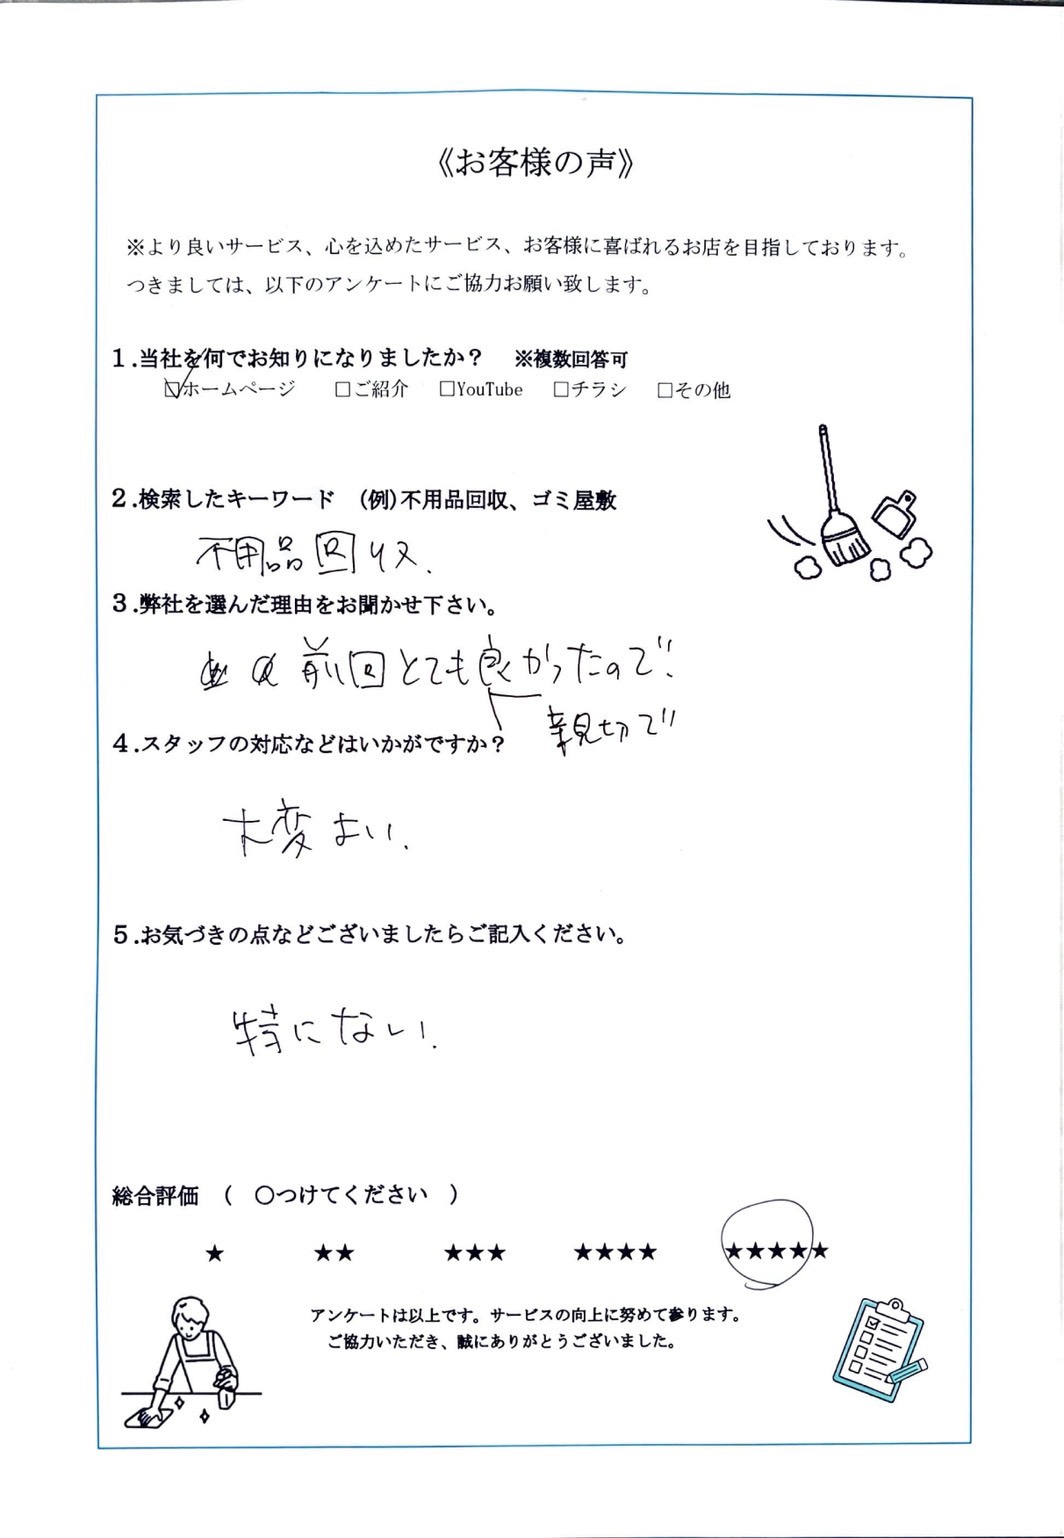 《お客様の声》
※より良いサービス、心を込めたサービス、お客様に喜ばれるお店を目指しております。
つきましては、以下のアンケートにご協力お願い致します。
1.当社を何でお知りになりましたか？　※複数回答可
☑ホームページ　□ご紹介　□YouTube　□チラシ　□その他
2.検索したキーワード　(例)不用品回収、ゴミ屋敷
不用品回収.
3.弊社を選んだ理由をお聞かせ下さい。
前回とても良かったので.
親切で
4.スタッフの対応などはいかがですか？
大変よい.
5.お気づきの点などございましたらご記入ください。
特にない.
総合評価　(　○つけてください　)
★　★★　★★★　★★★★　★★★★★
アンケートは以上です。サービスの向上に努めて参ります。
ご協力いただき、誠にありがとうございました。